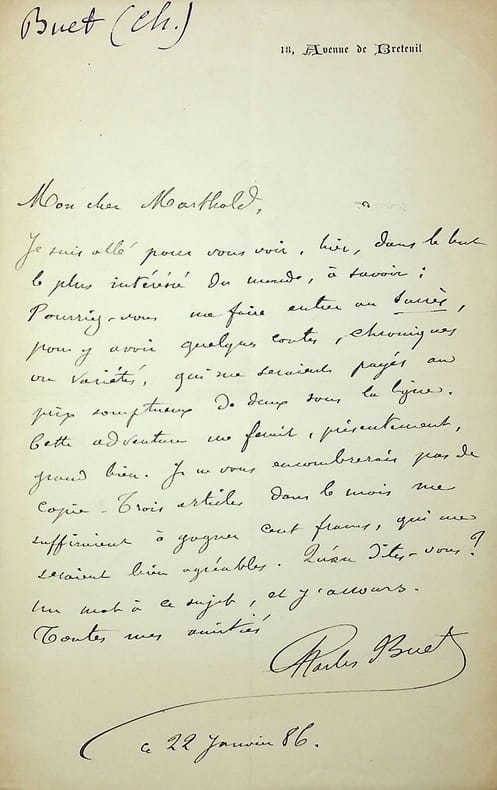 Buet (Ch.)
18, Avenue de Breteuil
Mon cher Marthold,
Je suis allé pour vous voir, hier, dans le but
le plus intéréssé du monde, à savoir :
Pourriez-vous me faire entrer au Succès,
pour y avoir quelques contes, chroniques
ou variétés, qui me seraient payés au
prix somptueux de deux sous la ligne.
Cette adventure me ferait, présentement,
grand bien. Je ne vous encombrerais pas de
copie - Trois articles dans le mois me
suffiraient à gagner cent francs, qui me
seraient bien agréables. Qu'en dites-vous?
un mot à ce sujet, et j'accours.
Toutes mes amitiés
Charles Buet
ce 22 Janvier 86.